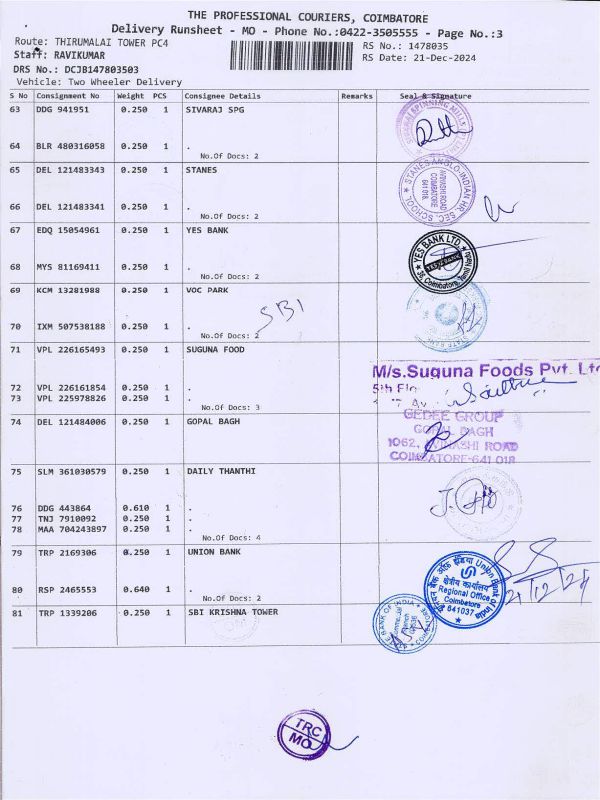 THE PROFESSIONAL COURIERS, COIMBATORE
Delivery Runsheet - MO - Phone No.:0422-3505555 - Page No.:3
Route: THIRUMALAI TOWER PC4
RS No.: 1478035
Staff: RAVIKUMAR
RS Date: 21-Dec-2024
DRS No.: DCJB147803503
Vehicle: Two Wheeler Delivery
S No Consignment No Weight PCS Consignee Details Remarks Seal & Signature
63 DDG 941951 0.250 1 SIVARAJ SPG
64 BLR 480316058 0.250 1 .
No.Of Docs: 2
65 DEL 121483343 0.250 1 STANES
STANES ANGLO-INDIAN HR. SEC. SCHOOL
AVINASHI ROAD
COIMBATORE
641 018.
66 DEL 121483341 0.250 1 .
No.Of Docs: 2
67 EDQ 15054961 0.250 1 YES BANK
YES BANK LTD.
YES BANK
Coimbatore, Tamil Nadu
68 MYS 81169411 0.250 1 .
No.Of Docs: 2
69 KCM 13281988 0.250 1 VOC PARK
SBI
70 IXM 507538188 0.250 1 .
No.Of Docs: 2
STATE BANK
71 VPL 226165493 0.250 1 SUGUNA FOOD
M/s.Suguna Foods Pvt. Ltd
5th Flo
72 VPL 226161854 0.250 1 .
73 VPL 225978826 0.250 1 .
No.Of Docs: 3
74 DEL 121484006 0.250 1 GOPAL BAGH
GEDEE GROUP
GOPAL BAGH
1062, AVINASHI ROAD
COIMBATORE-641 018
75 SLM 361030579 0.250 1 DAILY THANTHI
76 DDG 443864 0.610 1 .
77 TNJ 7910092 0.250 1 .
78 MAA 704243897 0.250 1 .
No.Of Docs: 4
79 TRP 2169306 0.250 1 UNION BANK
यूनियन बैंक ऑफ इंडिया Union Bank of India
क्षेत्रीय कार्यालय
Regional Office
Coimbatore
641037
21/12/24
80 RSP 2465553 0.640 1 .
No.Of Docs: 2
81 TRP 1339206 0.250 1 SBI KRISHNA TOWER
STATE BANK OF INDIA
Commercial
Branch
COIMBATORE
TRC
MO